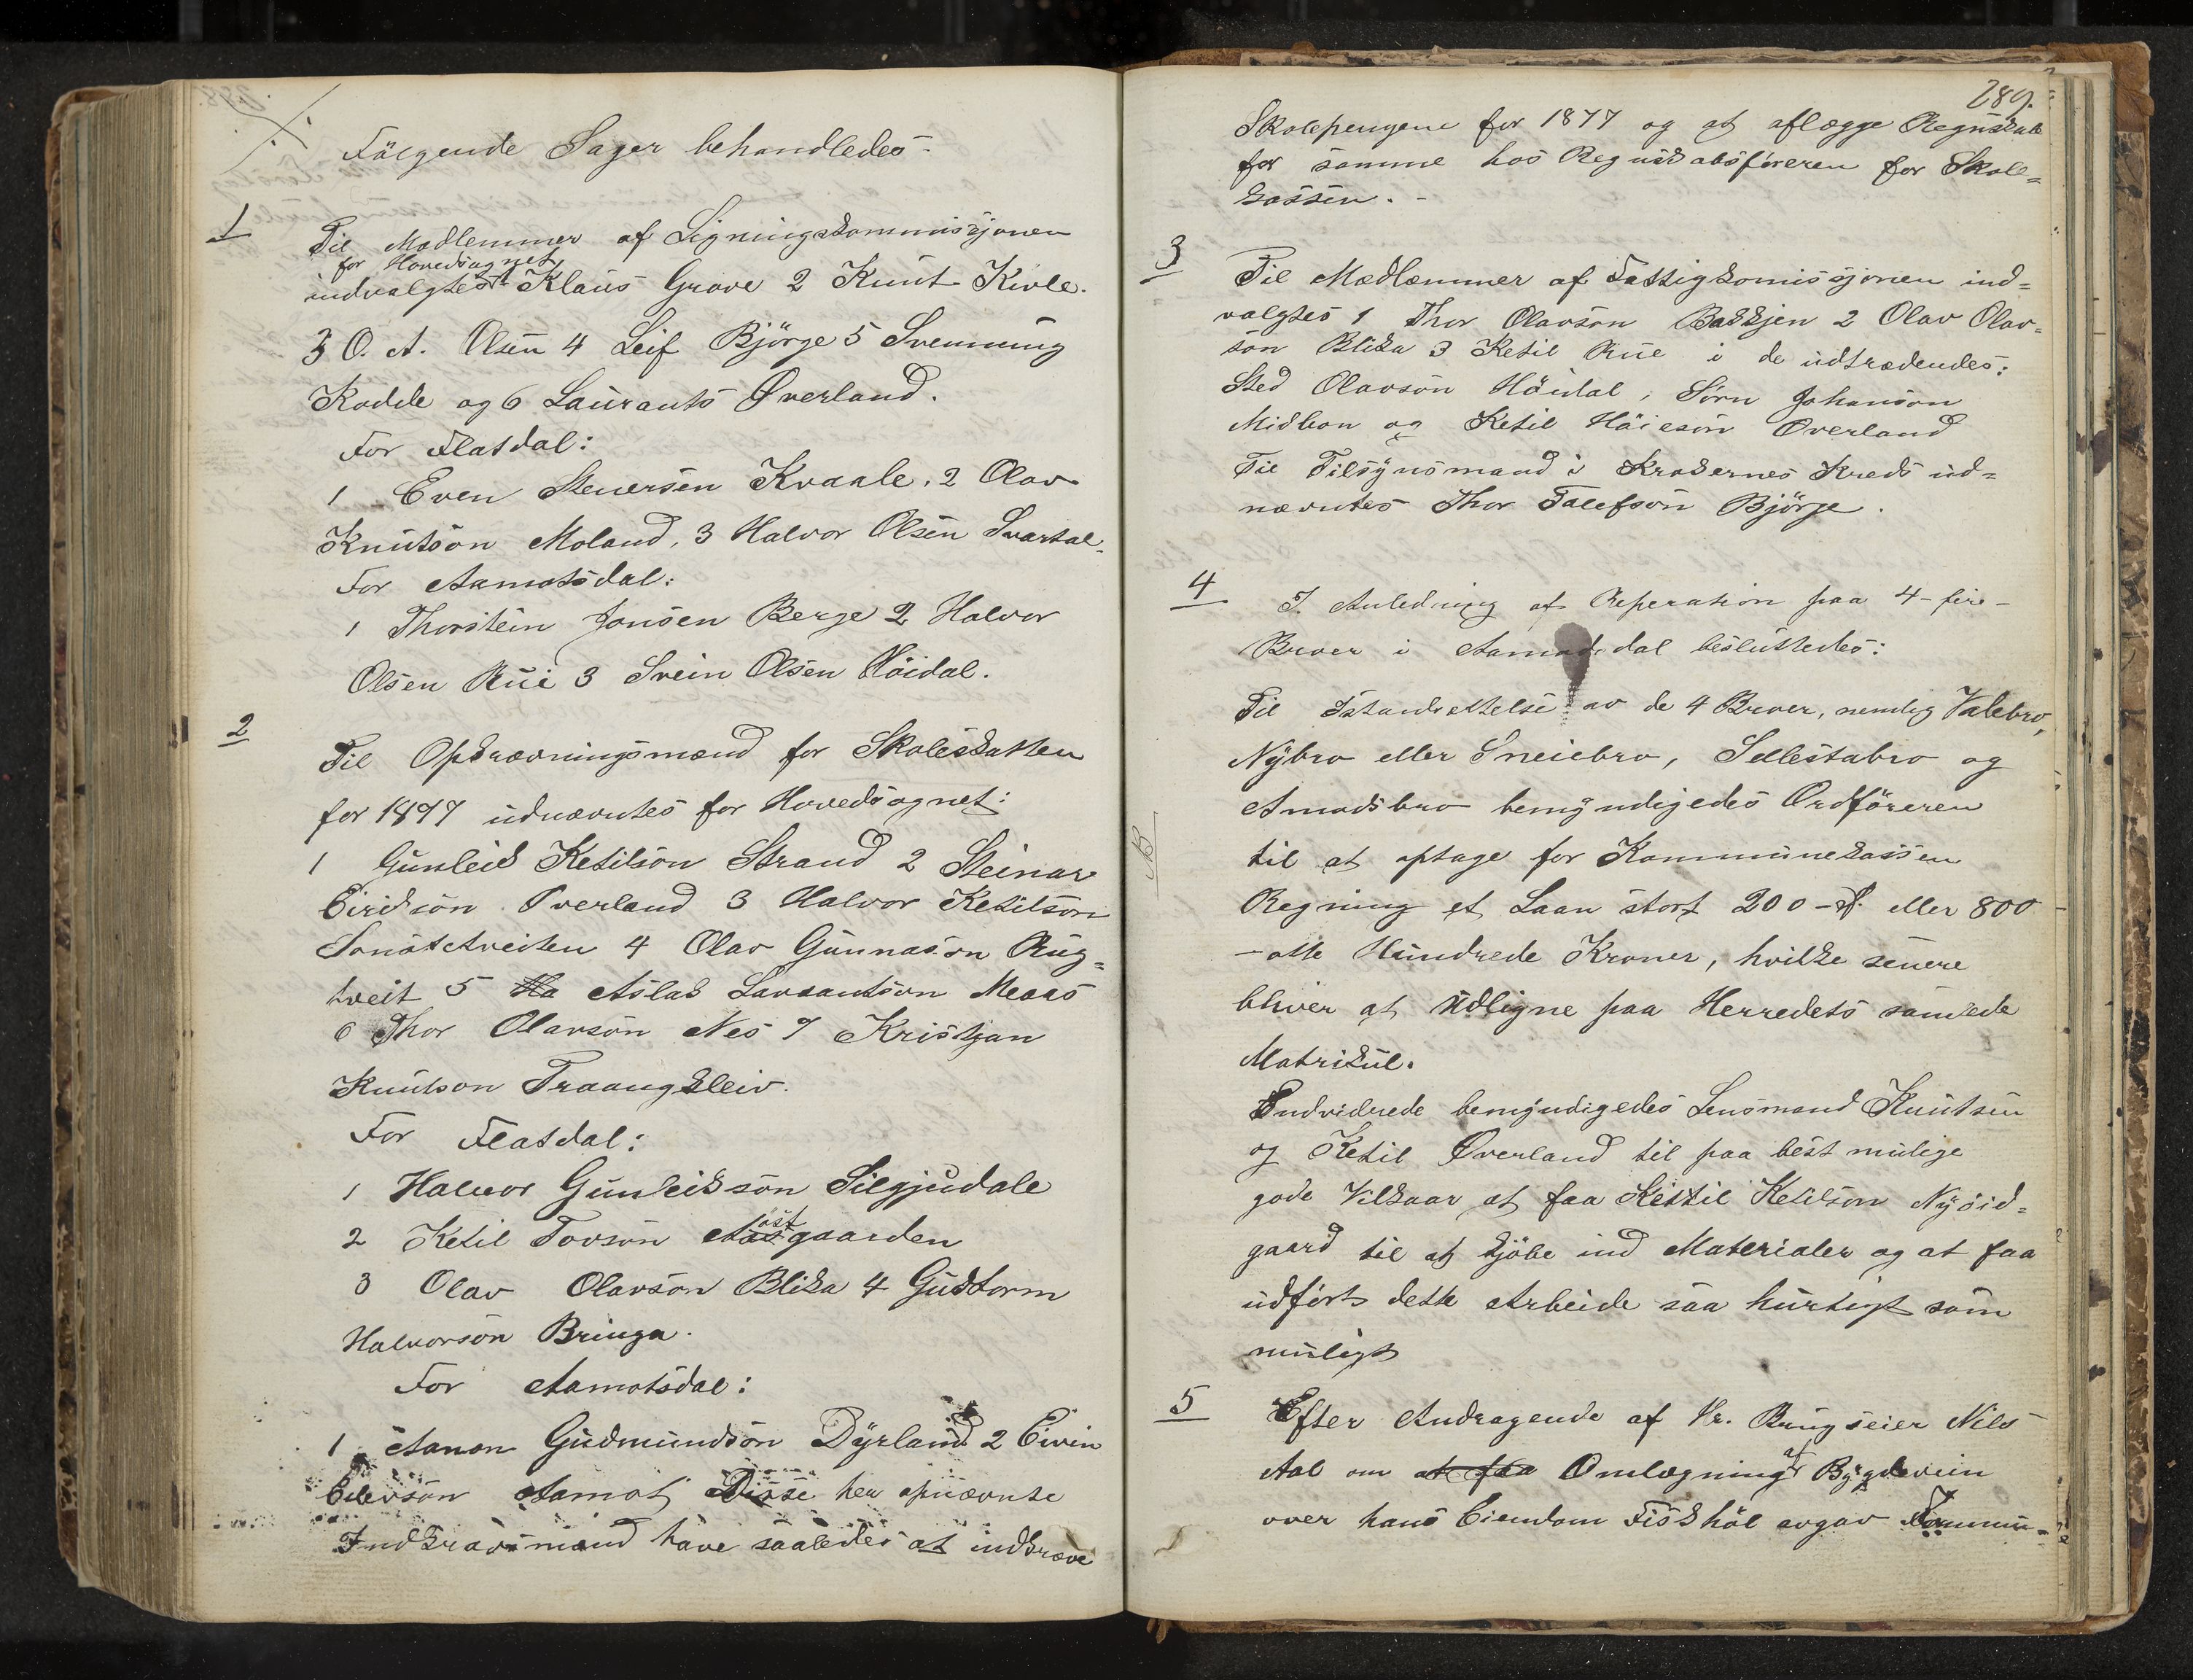 Fölgende Sager behandledes:
1
Til Medlemmer af Ligningskommissjonen
for Hovedsognet
indvalgtes 1 Klaus Grave 2 Knut Kivle.
3 O. A. Olsen 4 Leif Björge 5 Svennung
Kodde og 6 Laurants Øverland.
For Flatdal:
1 Even Stenersen Kvaale, 2 Olav
Knutson Moland, 3 Halvor Olsen Svartal.
For Aamotsdal:
1 Thorstein Jonsen Berge 2 Halvor
Olsen Rui 3 Svein Olsen Höidal.
2
Til Opkrævningsmænd for Skoleskatten
for 1877 udnævntes for Hovedsognet:
1 Gunleik Ketilson Strand 2 Steinar
Eirikson Øverland 3 Halvor Ketilson
4 Olav Gunnason Rug=
tveit 5 Ha Aslak Lavrantson Meaas
6 Thor Olavson Nes 7 Kristjan
Knutson Traangkleiv.
For Flatdal:
1 Halvor Gunleikson Silgjudale
2 Ketil Tovson Aastgaarden
3 Olav Olavson Blika 4 Gudtorm
Halvorson Bringa.
For Aamotsdal:
1 Aanon Gudmundson Dyrland 2 Eivin
Aamot Disse her opnævnte
Indkrævsmænd have saaledes at indkræve
289.
Skolepengene for 1877 og at aflægge Regnskab
for samme hos Regnskabsföreren for Skole=
kassen. -
3
Til Medlemmer af Fattigkomissjonen ind=
valgtes 1 Thor Olavson Bakkjen 2 Olav Olav=
son Blika 3 Ketil Rue i de udtrædendes:
Sted Olavson Höidal, Sörn Johanson
Midbon og Ketil Höieson Øverland
Til Tilsynsmand i Krokernes Kreds ud=
nævntes Thor Talefson Björge.
4
I Anledning af Reperation paa 4-fire-
Broer i Aamotsdal besluttedes:
Til Istandsettelse av de 4 Broer, nemlig Valebro,
Nybro eller Sneiebro, Sellestabro og
Amodsbro bemyndigedes Ordföreren
NB
til at optage for Kommunekassen
Regning et Laan stort 200-Sp. eller 800
- otte Hundrede Kroner, hvilke senere
bliver at udligne paa Herredets samlede
Matrikul.
Endvidrede bemyndigedes Lensmand Knutsen
og Ketil Øverland til paa best mulige
gode Vilkaar at faa Kettil Ketilson Nyöid=
gaard til at kjöbe ind Materialer og at faa
udfört dette Arbeide saa hurtigt som
muligt
5
Efter Andragende af Hr. Brugseier Nils
Aal om at faa Omlægning af Bygdevein
over hans Eiendom Fiskhöl avgav Formun=